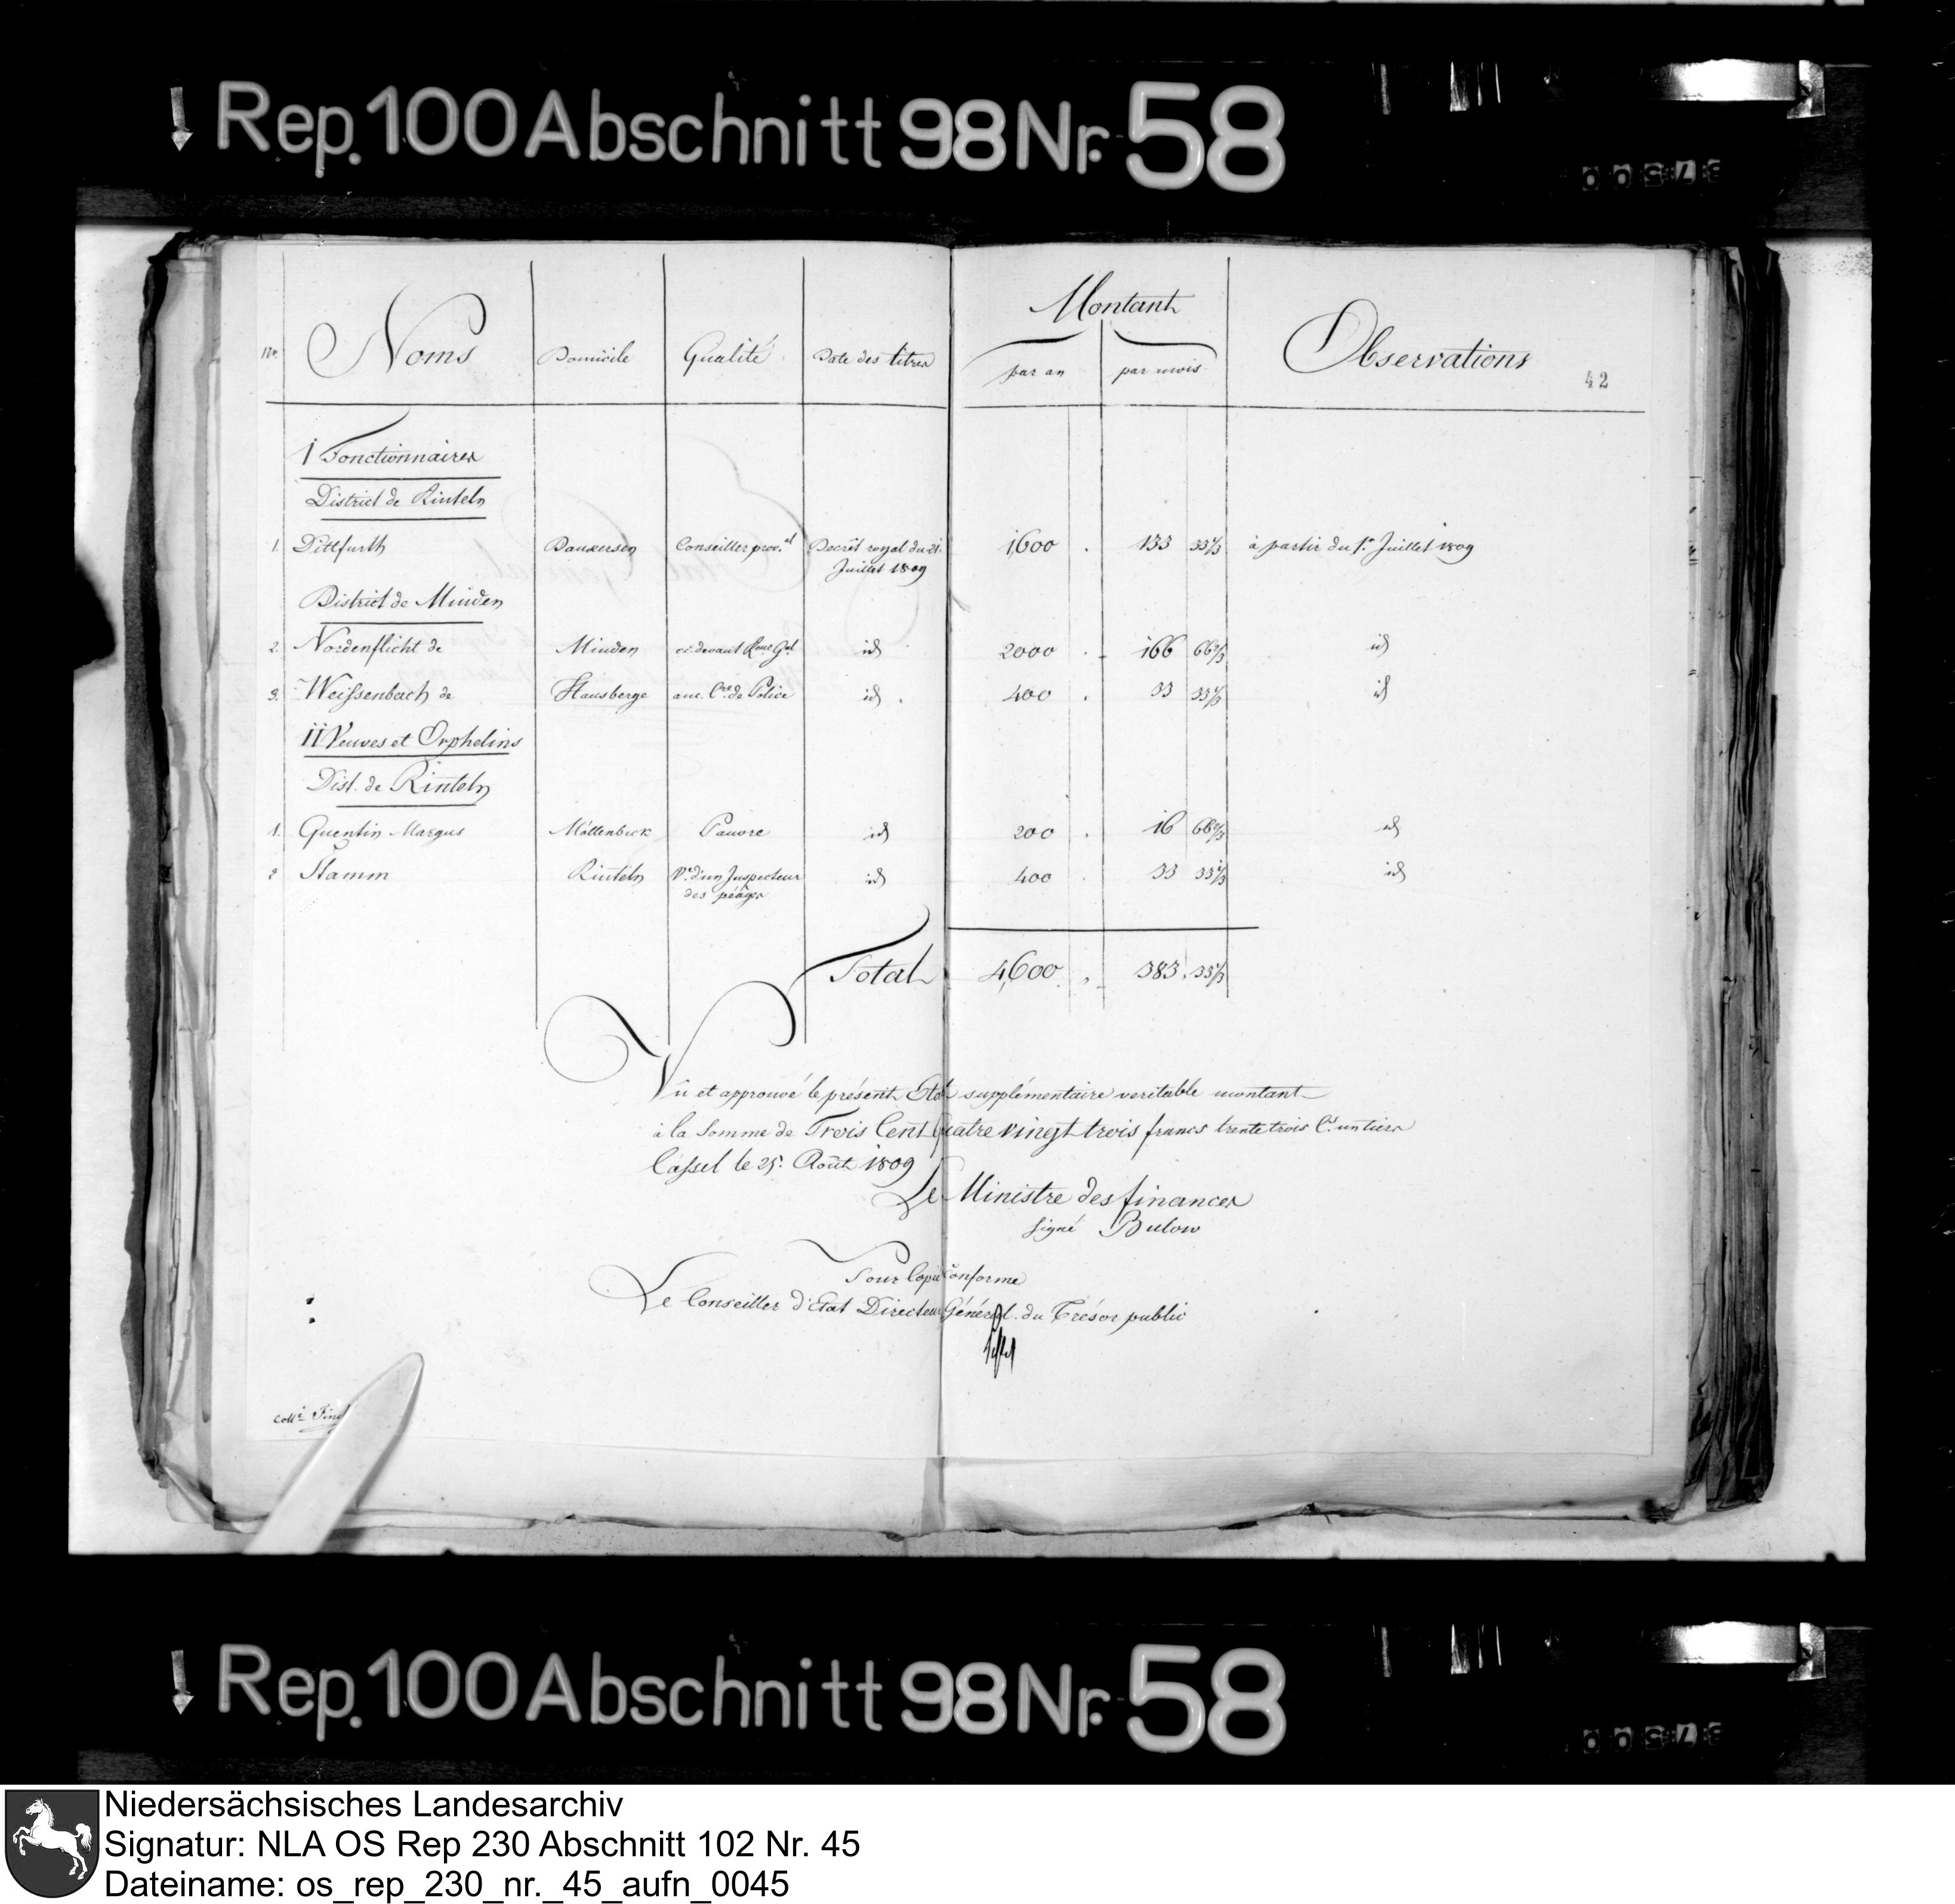 Rep. 100 Abschnitt 98 Nr. 58
Montant
No. Noms Domicile Qualité Date des titres par an par mois Observations
42
I Fonctionnaires
District de Rinteln
1. Dittfurth Dankersen Conseiller prov.al Decrêt royal du 21. 1600 . 133 33⅓ à partir du 1.er Juillet 1809
Juillet 1809
District de Minden
2. Nordenflicht de Minden ci-devant Gal id 2000 . 166 66⅔ id
3. Weissenbach de Hausberge anc. C.re de Police id . 400 . 33 33⅓ id
II Veuves et Orphelins
Dist. de Rinteln
1. Quentin Margus Möllenbeck Pauvre id 200 . 16 66⅔ id
2 Stamm Rinteln V.e d'un Inspecteur id 400 . 33 33⅓ id
des péages
Total 4600 . 383 . 33⅓
Vu et approuvé le présent Etat supplémentaire veritable montant
à la Somme de Trois Cent Quatre vingt trois francs trente trois C.s un tiers
Cassel le 25. Août 1809
Le Ministre des finances
signé Bulow
Pour Copie Conforme
Le Conseiller d'Etat Directeur Général du Trésor public
Coll.é
Rep. 100 Abschnitt 98 Nr. 58
Niedersächsisches Landesarchiv
Signatur: NLA OS Rep 230 Abschnitt 102 Nr. 45
Dateiname: os_rep_230_nr._45_aufn_0045